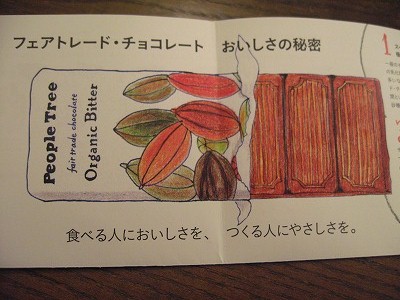 フェアトレード・チョコレート おいしさの秘密
1
People Tree
fair trade chocolate
Organic Bitter
食べる人においしさを、 つくる人にやさしさを。